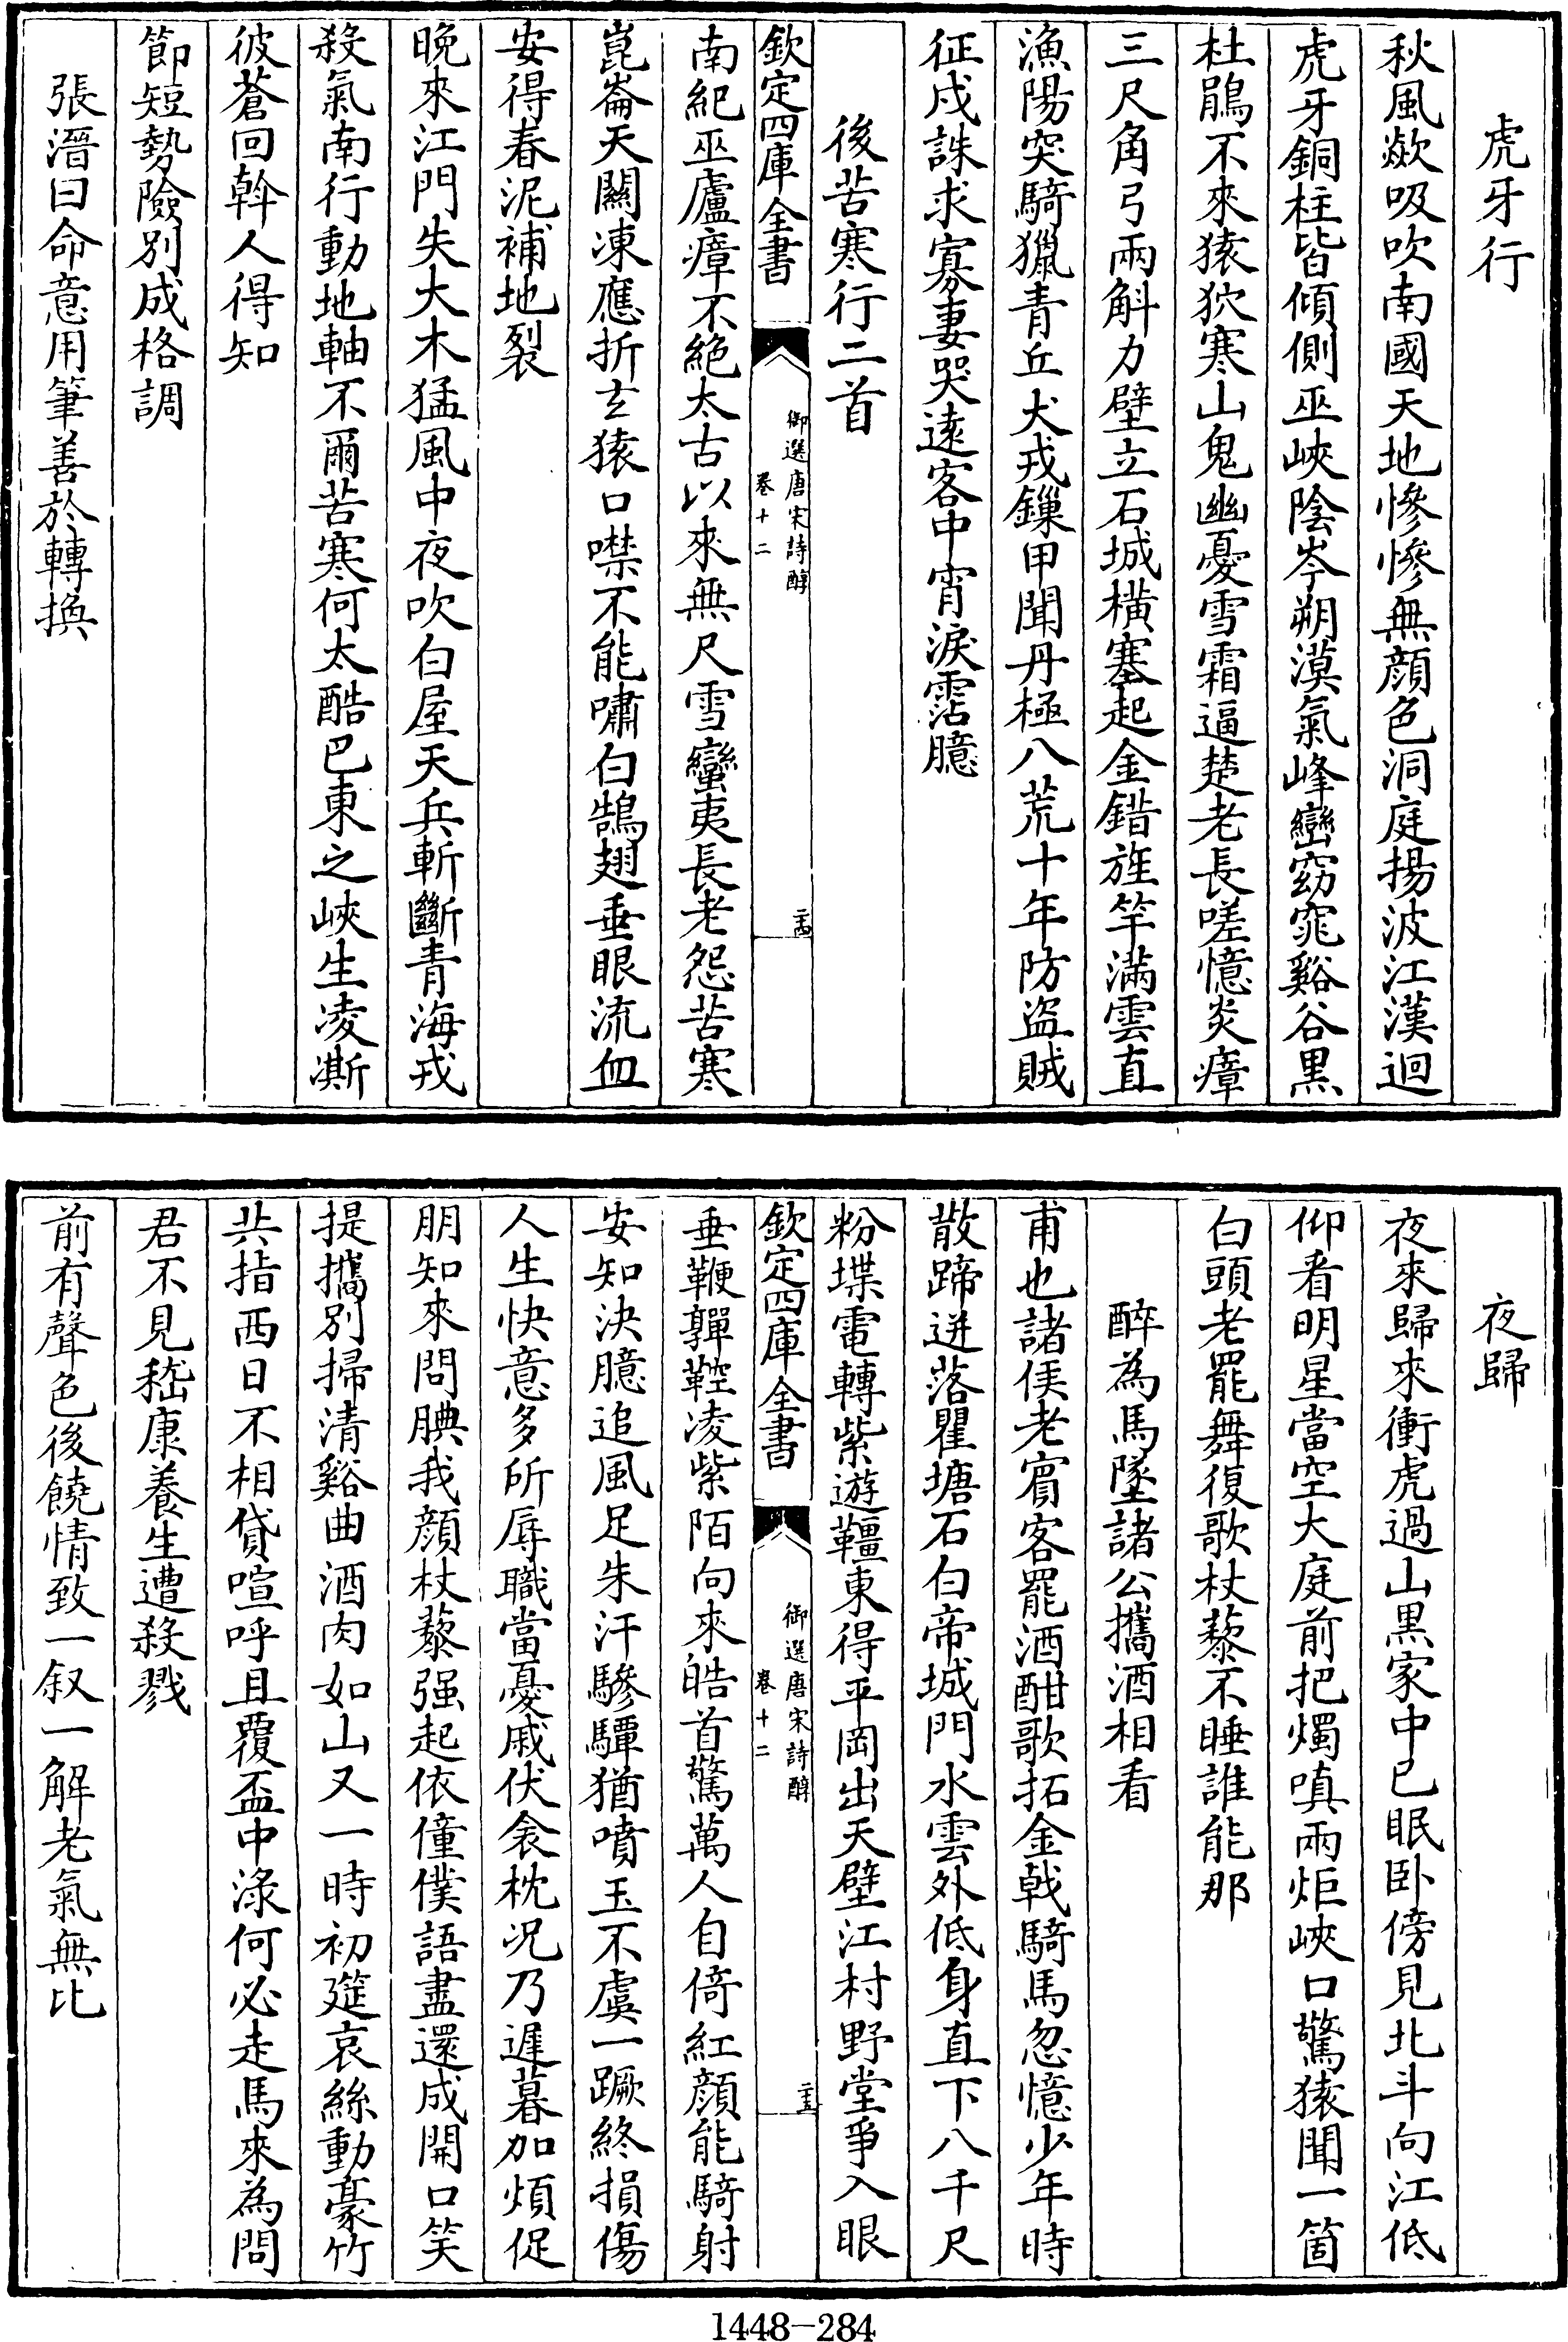 虎牙行
秋風歘吸吹南國天地慘慘無顔色洞庭揚波江漢迴
虎牙銅柱皆傾側巫峽陰岑朔漠氣峰巒窈窕谿谷黒
杜鵑不來猿狖寒山鬼幽憂雪霜逼楚老長嗟憶炎瘴
三尺角弓兩斛力壁立石城橫塞起金錯旌竿滿雲直
漁陽突騎獵青丘犬戎鏁甲聞丹極八荒十年防盗賊
征戍誅求寡妻哭逺客中宵淚霑臆
後苦寒行二首
欽定四庫全書
御選唐宋詩醇
卷十二
二十四
南紀巫廬瘴不絶太古以來無尺雪蠻夷長老怨苦寒
崑崙天關凍應折𤣥猿口噤不能嘯白鵠翅垂眼流血
安得春泥補地裂
晩來江門失大木猛風中夜吹白屋天兵斬斷青海戎
殺氣南行動地軸不爾苦寒何太酷巴東之峽生凌凘
彼蒼回斡人得知
節短勢險別成格調
張溍曰命意用筆善於轉換
夜歸
夜來歸來衝虎過山黒家中已眠卧傍見北斗向江低
仰看明星當空大庭前把燭嗔兩炬峽口驚猿聞一箇
白頭老罷舞復歌杖藜不睡誰能那
醉為馬墜諸公攜酒相看
甫也諸侯老賓客罷酒酣歌拓金㦸騎馬忽憶少年時
散蹄迸落瞿塘石白帝城門水雲外低身直下八千尺
粉堞電轉紫遊韁東得平岡出天壁江村野堂爭入眼
欽定四庫全書
御選唐宋詩醇
卷十二
二十五
垂鞭嚲鞚凌紫陌向來皓首驚萬人自倚紅顔能騎射
安知決臆追風足朱汗驂驔猶噴玉不虞一蹶終損傷
人生快意多所辱職當憂戚伏衾枕况乃遲暮加煩促
朋知來問腆我顔杖藜强起依僮僕語盡還成開口笑
提攜別掃清谿曲酒肉如山又一時初筵哀絲動豪竹
共指西日不相貸喧呼且覆盃中渌何必走馬來為問
君不見嵇康養生遭殺戮
前有聲色後饒情致一叙一解老氣無比
1448-284